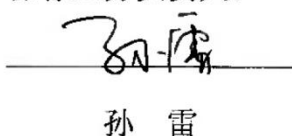 孙雷
孙 雷